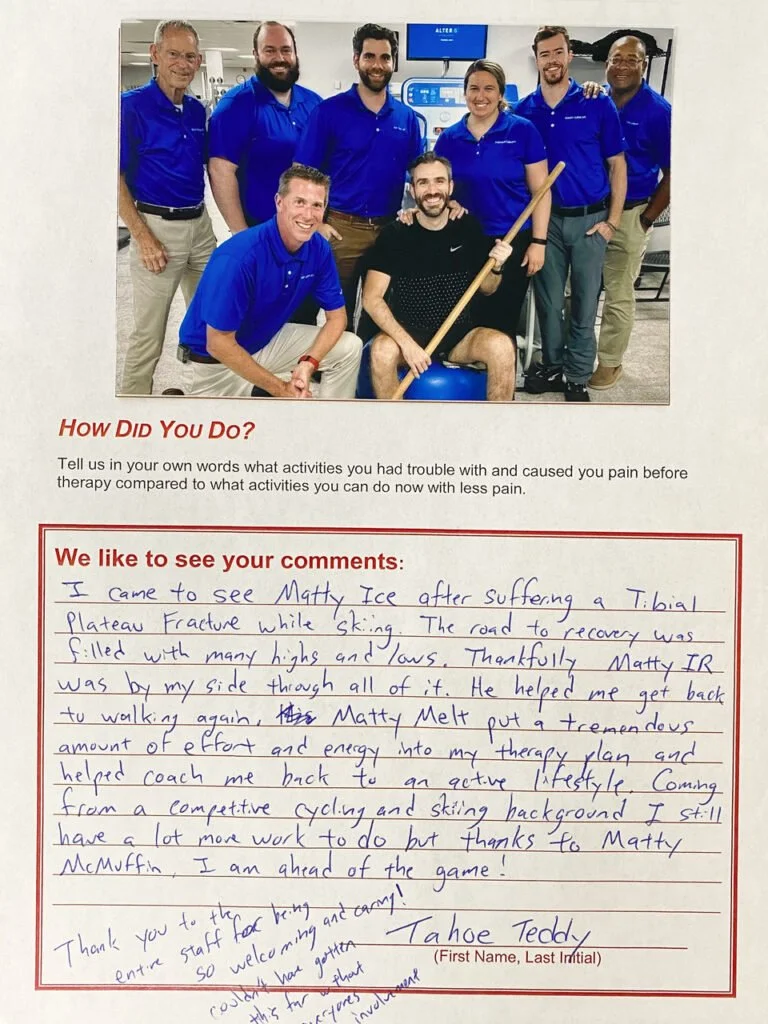 ALTER
How Did You Do?
Tell us in your own words what activities you had trouble with and caused you pain before
therapy compared to what activities you can do now with less pain.
We like to see your comments:
I came to see Matty Ice after suffering a Tibial
Plateau Fracture while skiing. The road to recovery was
filled with many highs and lows. Thankfully Matty IR
was by my side through all of it. He helped me get back
to walking again. Matty Melt put a tremendous
amount of effort and energy into my therapy plan and
helped coach me back to an active lifestyle. Coming
from a competitive cycling and skiing background I still
have a lot more work to do but thanks to Matty
McMuffin, I am ahead of the game!
Thank you to the
entire staff for being
so welcoming and caring!
couldn't have gotten
this far without
everyones involvement
Tahoe Teddy
(First Name, Last Initial)